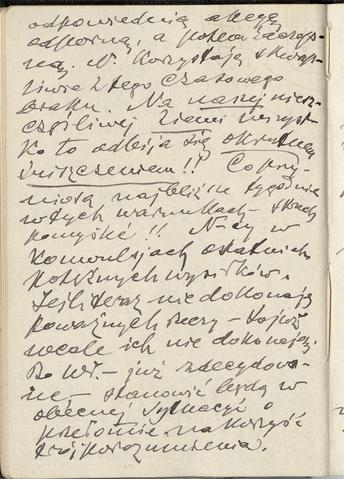 odpowiednią akcję
odporną, a potem zaczep-
ną. N. Korzystają skwap-
liwie z tego czasowego
braku. Na naszej niesz-
częśliwej ziemi wszyst-
ko to odbija się okrutnem
zniszczeniem!! Co przy-
niosą najbliższe tygodnie
w tych warunkach – strach
pomyśleć!! N-cy w
konwulsjach ostatnich
potężnych wysiłków.
Jeśli teraz nie dokonają
poważnych rzeczy – to już
wcale ich nie dokonają.
Bo Wł. – już zdecydowa-
ne – stanowić będą w
obecnej sytuacji o
przełomie na korzyść
trójporozumienia.